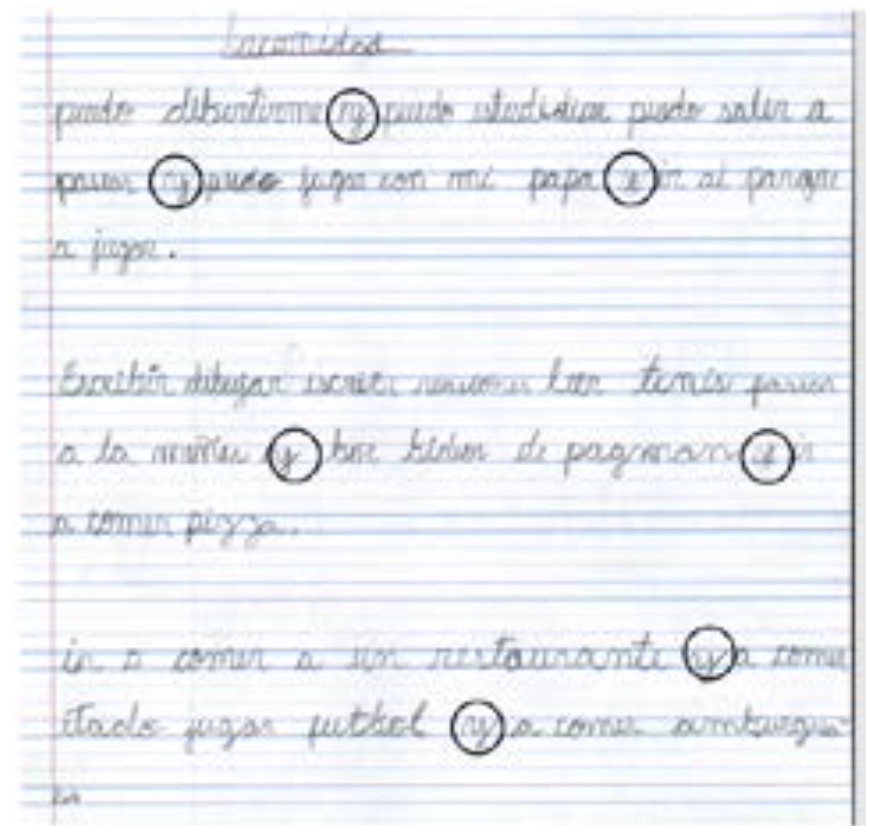 Lacomidad
puedo dibertirme y puedo estudiar puedo salir a
pasear y puedo jugar con mi papa e ir al parque
a jugar.
Escribir dibujar leer tenis
a la y ber de pagman e ir
a comer pizza.
ir a comer a un restaurante y a comer
elado jugar futbol y a comer amburgue